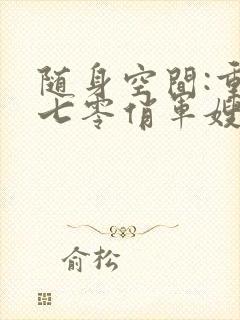 随身空间:重
七零俏军嫂
俞松